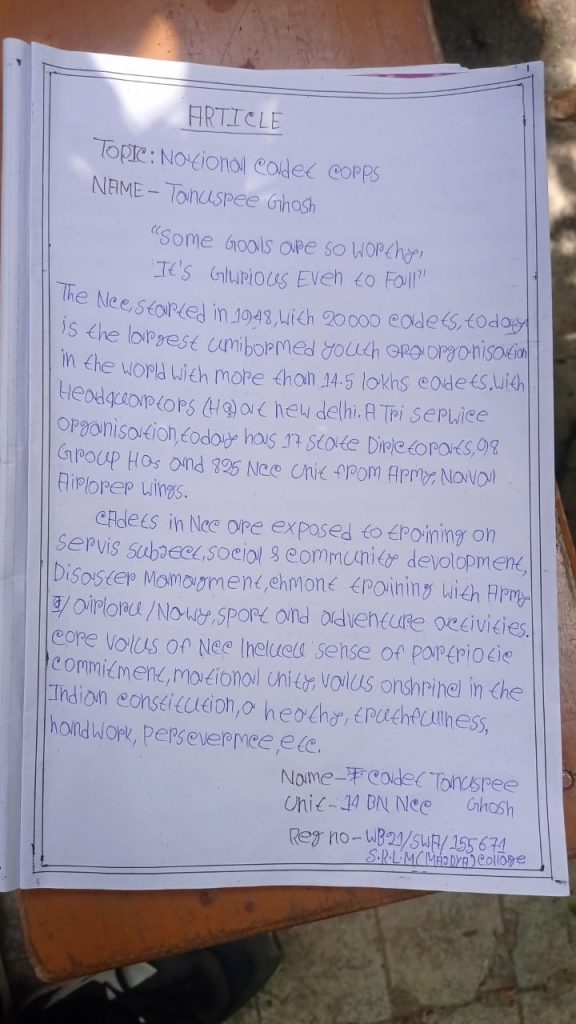 ARTICLE
TOPIC: National Cadet Corps
NAME - Tanusree Ghosh
"Some Goals are so worthy,
It's Glurious Even to Fall"
The Ncc, started in 1948, with 20000 cadets, today
is the largest umibormed youth organisation
in the world with more than 14.5 lakhs cadets, with
Headqcartors (HQ) at new delhi. A Tri serwice
organisation, today has 17 State Dirictorats, 98
Group HQs and 825 Ncc Unit from Army, Naval
Airlorer wings.
CAdets in Ncc are exposed to training on
servis subject, social & community devolopment,
Disaster Mamagment, ehmont training with Army
/ airloru / Nawy, sport and adventure activities.
core valus of Ncc Inelueu sense of partriotic
commitment, mational unity, valus onshrinel in the
Indian constitution, a heathy, truthfullness,
handwork, persevermce, etc.
Name - cadet Tanusree
Ghosh
Unit - 14 BN Ncc
Reg no - WB21/SWA/155671
S.R.L.M (MAJDYA) college